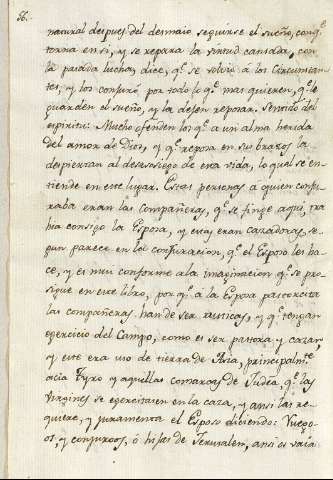 56.
natural despues del desmaio seguirse el sueño, con q.e
torna en si, y se repara la virtud cansada, con
la pasada lucha, dice, q.e se volvió á los circunstan-
tes, y los conjuró por todo lo q.e mas quieren, q.e le
guarden el sueño, y la dejen reposar. Sentido del
espiritu: Mucho ofenden los q.e a un alma herida
del amor de Dios, y q.e reposa en sus brazos la
despiertan al desasosiego de esta vida, lo qual se en-
tiende en este lugar. Estas personas á quien conju-
raba eran las compañeras, q.e se finge aquí, tra
hia consigo la Esposa, y estas eran cazadoras, se-
gun parece en la conjuracion, q.e el Esposo les ha-
ce, y es mui conforme a la imaginacion q.e se pro-
sigue en este libro, por q.e á la Esposa pastorcita
las compañeras han de ser rusticas, y q.e tengan
egercicio del Campo, como es ser pastora y cazar
y este era uso de tierra de Asia, principalm.te
acia Tyro y aquellas comarcas de Judea, q.e las
virgines se egercitasen en la caza, y ansi las re-
quiere, y juramenta el Esposo diciendo: Ruego-
os, y conjuroos, ó hijas de Jerusalen, ansi os vaia